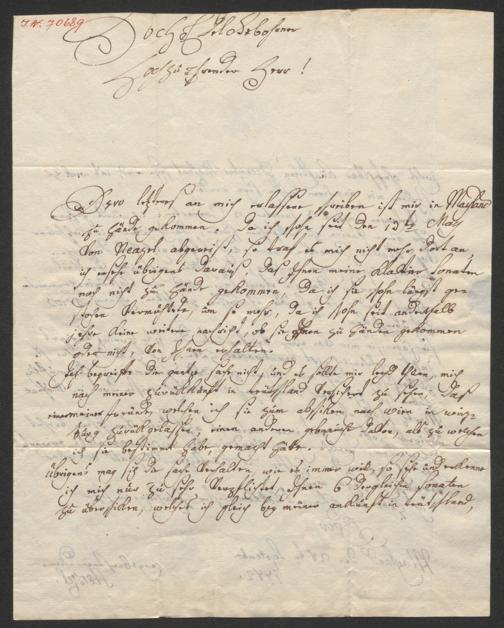 I.N. 70689
Hoch Edelgebohrner
Hochzuehrender Herr!
Dero letzteres an mich erlassene schreiben ist mir in Mayland
zu handen gekommen. Da ich schon seit den 13ten May
von Neapel abgereist, so traf es mich nicht mehr dort an
ich ersehe übrigens daraus, daß Ihnen meine Klavier Sonaten
noch nicht zu hand gekommen, da ich sie schon längst
vermuthete, um so mehr, da ich schon seit anderthalb
jahre keine weitere nachricht, ob sie Ihnen zu handen gekommen
oder nicht, von Ihnen erhalten.
Ich begreiffe die ganze sache nicht, und es sollte mir leyd thun, mich
nach meiner zurückkunft in teutschland versichert zu sehen, daß
meiner freunde, welchen ich sie zum abschiken nach wien in
zurückgelassen, einen anderen gebrauch davon, als zu welchen
ich sie bestimmt habe, gemacht hätte.
übrigens mag sich die sache verhalten, wie es immer will, so sehe und erkenne
ich mich nur zu sehr verpflichtet, Ihnen 6 dergleichen sonaten
zu überschiken, welches ich gleich bey meiner ankunft in teutschland,